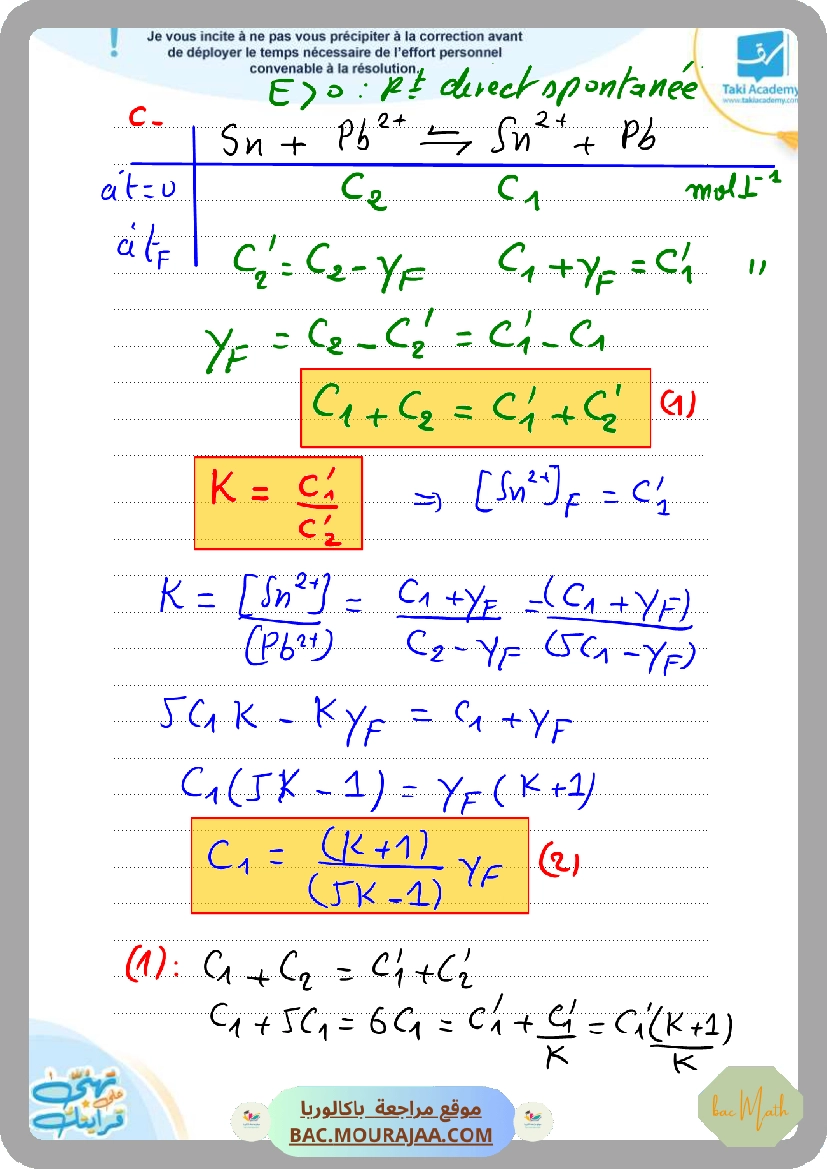 Je vous incite à ne pas vous précipiter à la correction avant
de déployer le temps nécessaire de l'effort personnel
convenable à la résolution.
Taki Academy
www.takiacademy.com
E > 0 : Rt direct spontanée
C -
Sn + Pb²⁺ ⇌ Sn²⁺ + Pb
à t=0 C₂ C₁ mol L⁻¹
à tF C₂' = C₂ - yF C₁ + yF = C₁' "
yF = C₂ - C₂' = C₁' - C₁
C₁ + C₂ = C₁' + C₂' (1)
K = C₁'/C₂' ⇒ [Sn²⁺]F = C₁'
K = [Sn²⁺]/(Pb²⁺) = (C₁ + yF)/(C₂ - yF) = (C₁ + yF)/(5C₁ - yF)
5C₁K - KyF = C₁ + yF
C₁(5K - 1) = yF(K+1)
C₁ = (K+1)/(5K-1) yF (2)
(1): C₁ + C₂ = C₁' + C₂'
C₁ + 5C₁ = 6C₁ = C₁' + C₁'/K = C₁'(K+1)/K
موقع مراجعة باكالوريا
BAC.MOURAJAA.COM
bac Math